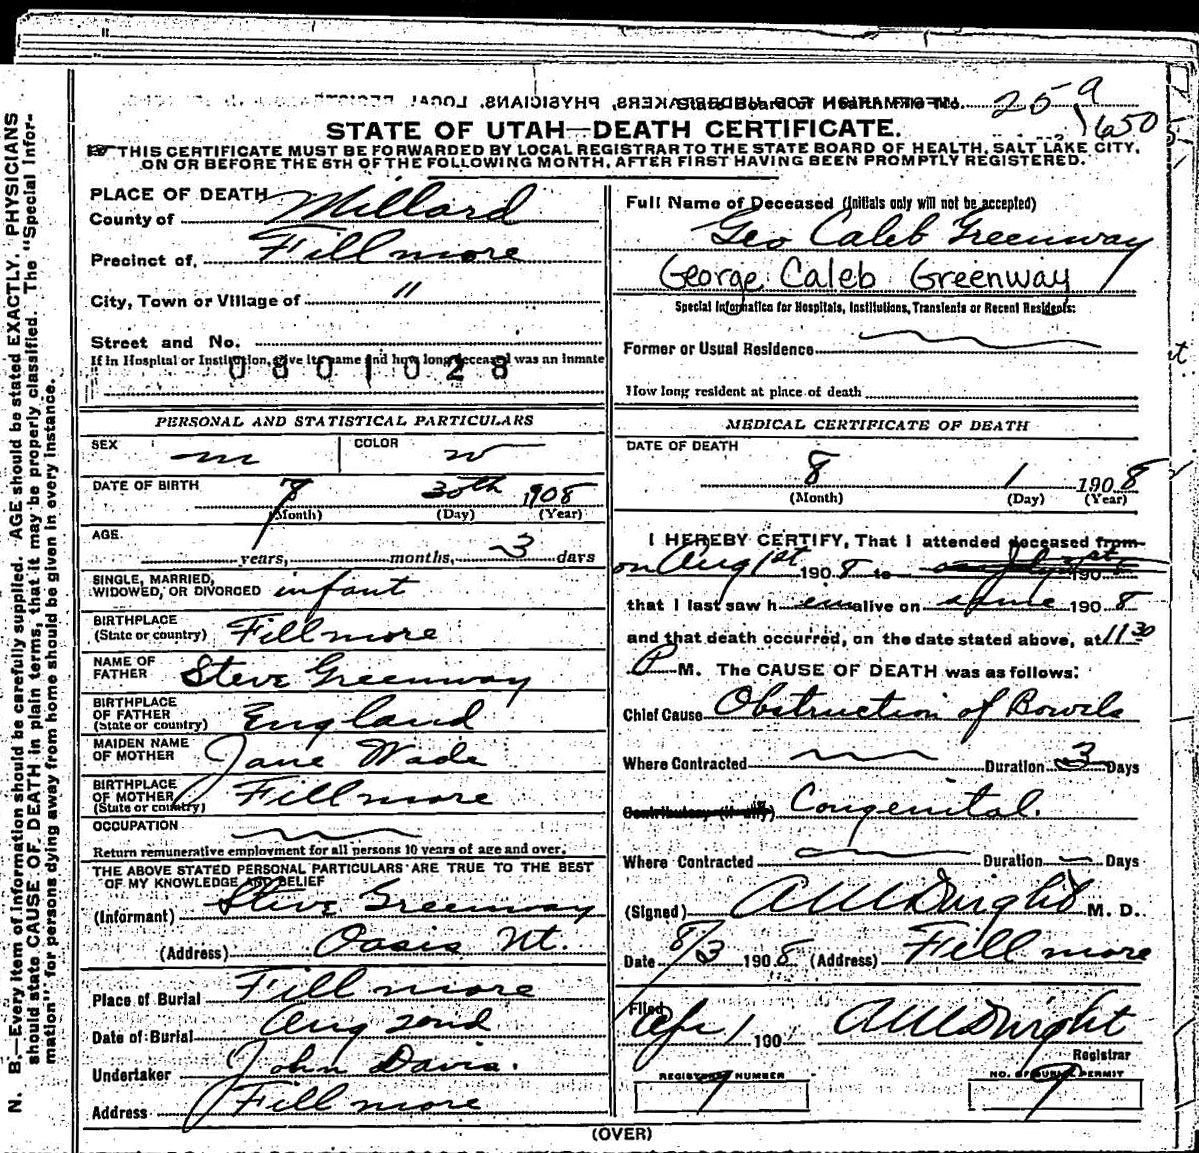 259
1650
STATE OF UTAH—DEATH CERTIFICATE.
THIS CERTIFICATE MUST BE FORWARDED BY LOCAL REGISTRAR TO THE STATE BOARD OF HEALTH, SALT LAKE CITY,
ON OR BEFORE THE 5TH OF THE FOLLOWING MONTH, AFTER FIRST HAVING BEEN PROMPTLY REGISTERED.
PLACE OF DEATH
County of Millard
Precinct of Fillmore
City, Town or Village of "
Street and No.
If in Hospital or Institution, give its name and how long deceased was an inmate
0801028
PERSONAL AND STATISTICAL PARTICULARS
SEX m COLOR w
DATE OF BIRTH 7 30th 1908
(Month) (Day) (Year)
AGE
years, months, 3 days
SINGLE, MARRIED,
WIDOWED, OR DIVORCED infant
BIRTHPLACE
(State or country) Fillmore
NAME OF
FATHER Steve Greenway
BIRTHPLACE
OF FATHER
(State or country) England
MAIDEN NAME
OF MOTHER Jane Wade
BIRTHPLACE
OF MOTHER
(State or country) Fillmore
OCCUPATION
Return remunerative employment for all persons 10 years of age and over.
THE ABOVE STATED PERSONAL PARTICULARS ARE TRUE TO THE BEST
OF MY KNOWLEDGE AND BELIEF
(Informant) Steve Greenway
(Address) Oasis Ut.
Place of Burial Fillmore
Date of Burial Aug 2ond
Undertaker John Davis.
Address Fillmore
Full Name of Deceased (Initials only will not be accepted)
Geo Caleb Greenway
George Caleb Greenway
Special Information for Hospitals, Institutions, Transients or Recent Residents:
Former or Usual Residence
How long resident at place of death
MEDICAL CERTIFICATE OF DEATH
DATE OF DEATH
8 1 1908
(Month) (Day) (Year)
I HEREBY CERTIFY, That I attended deceased from
on Aug 1st 1908 to 190
that I last saw h em alive on same 1908
and that death occurred, on the date stated above, at 11 30
P M. The CAUSE OF DEATH was as follows:
Chief Cause Obstruction of Bowels
Where Contracted Duration 3 Days
Contributory (if any) Congenital.
Where Contracted Duration Days
(Signed) M. D.
Date 8/3 1908 (Address) Fillmore
Filed 1 190
Registrar
REGISTERED NUMBER NO. OF BURIAL PERMIT
(OVER)
N. B.—Every item of information should be carefully supplied. AGE should be stated EXACTLY. PHYSICIANS
should state CAUSE OF DEATH in plain terms, that it may be properly classified. The "Special Infor-
mation" for persons dying away from home should be given in every instance.